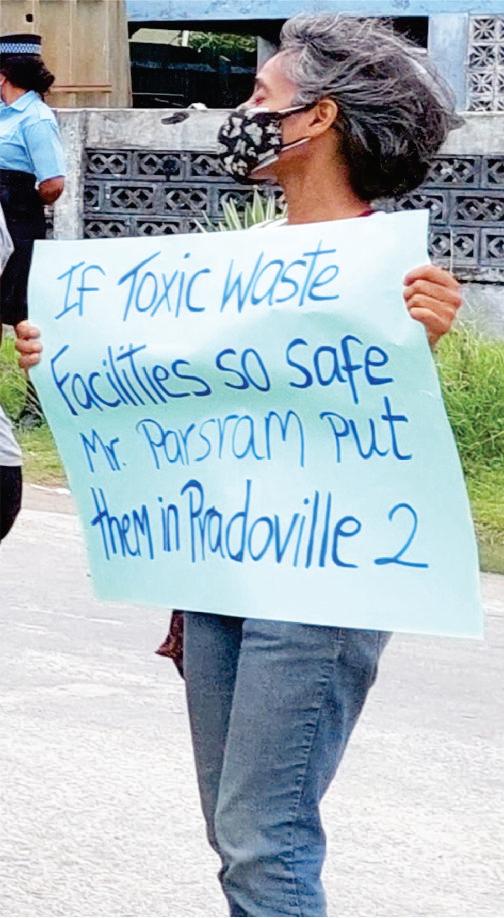 If Toxic Waste
Facilities so safe
Mr. Parsram Put
them in Pradoville 2